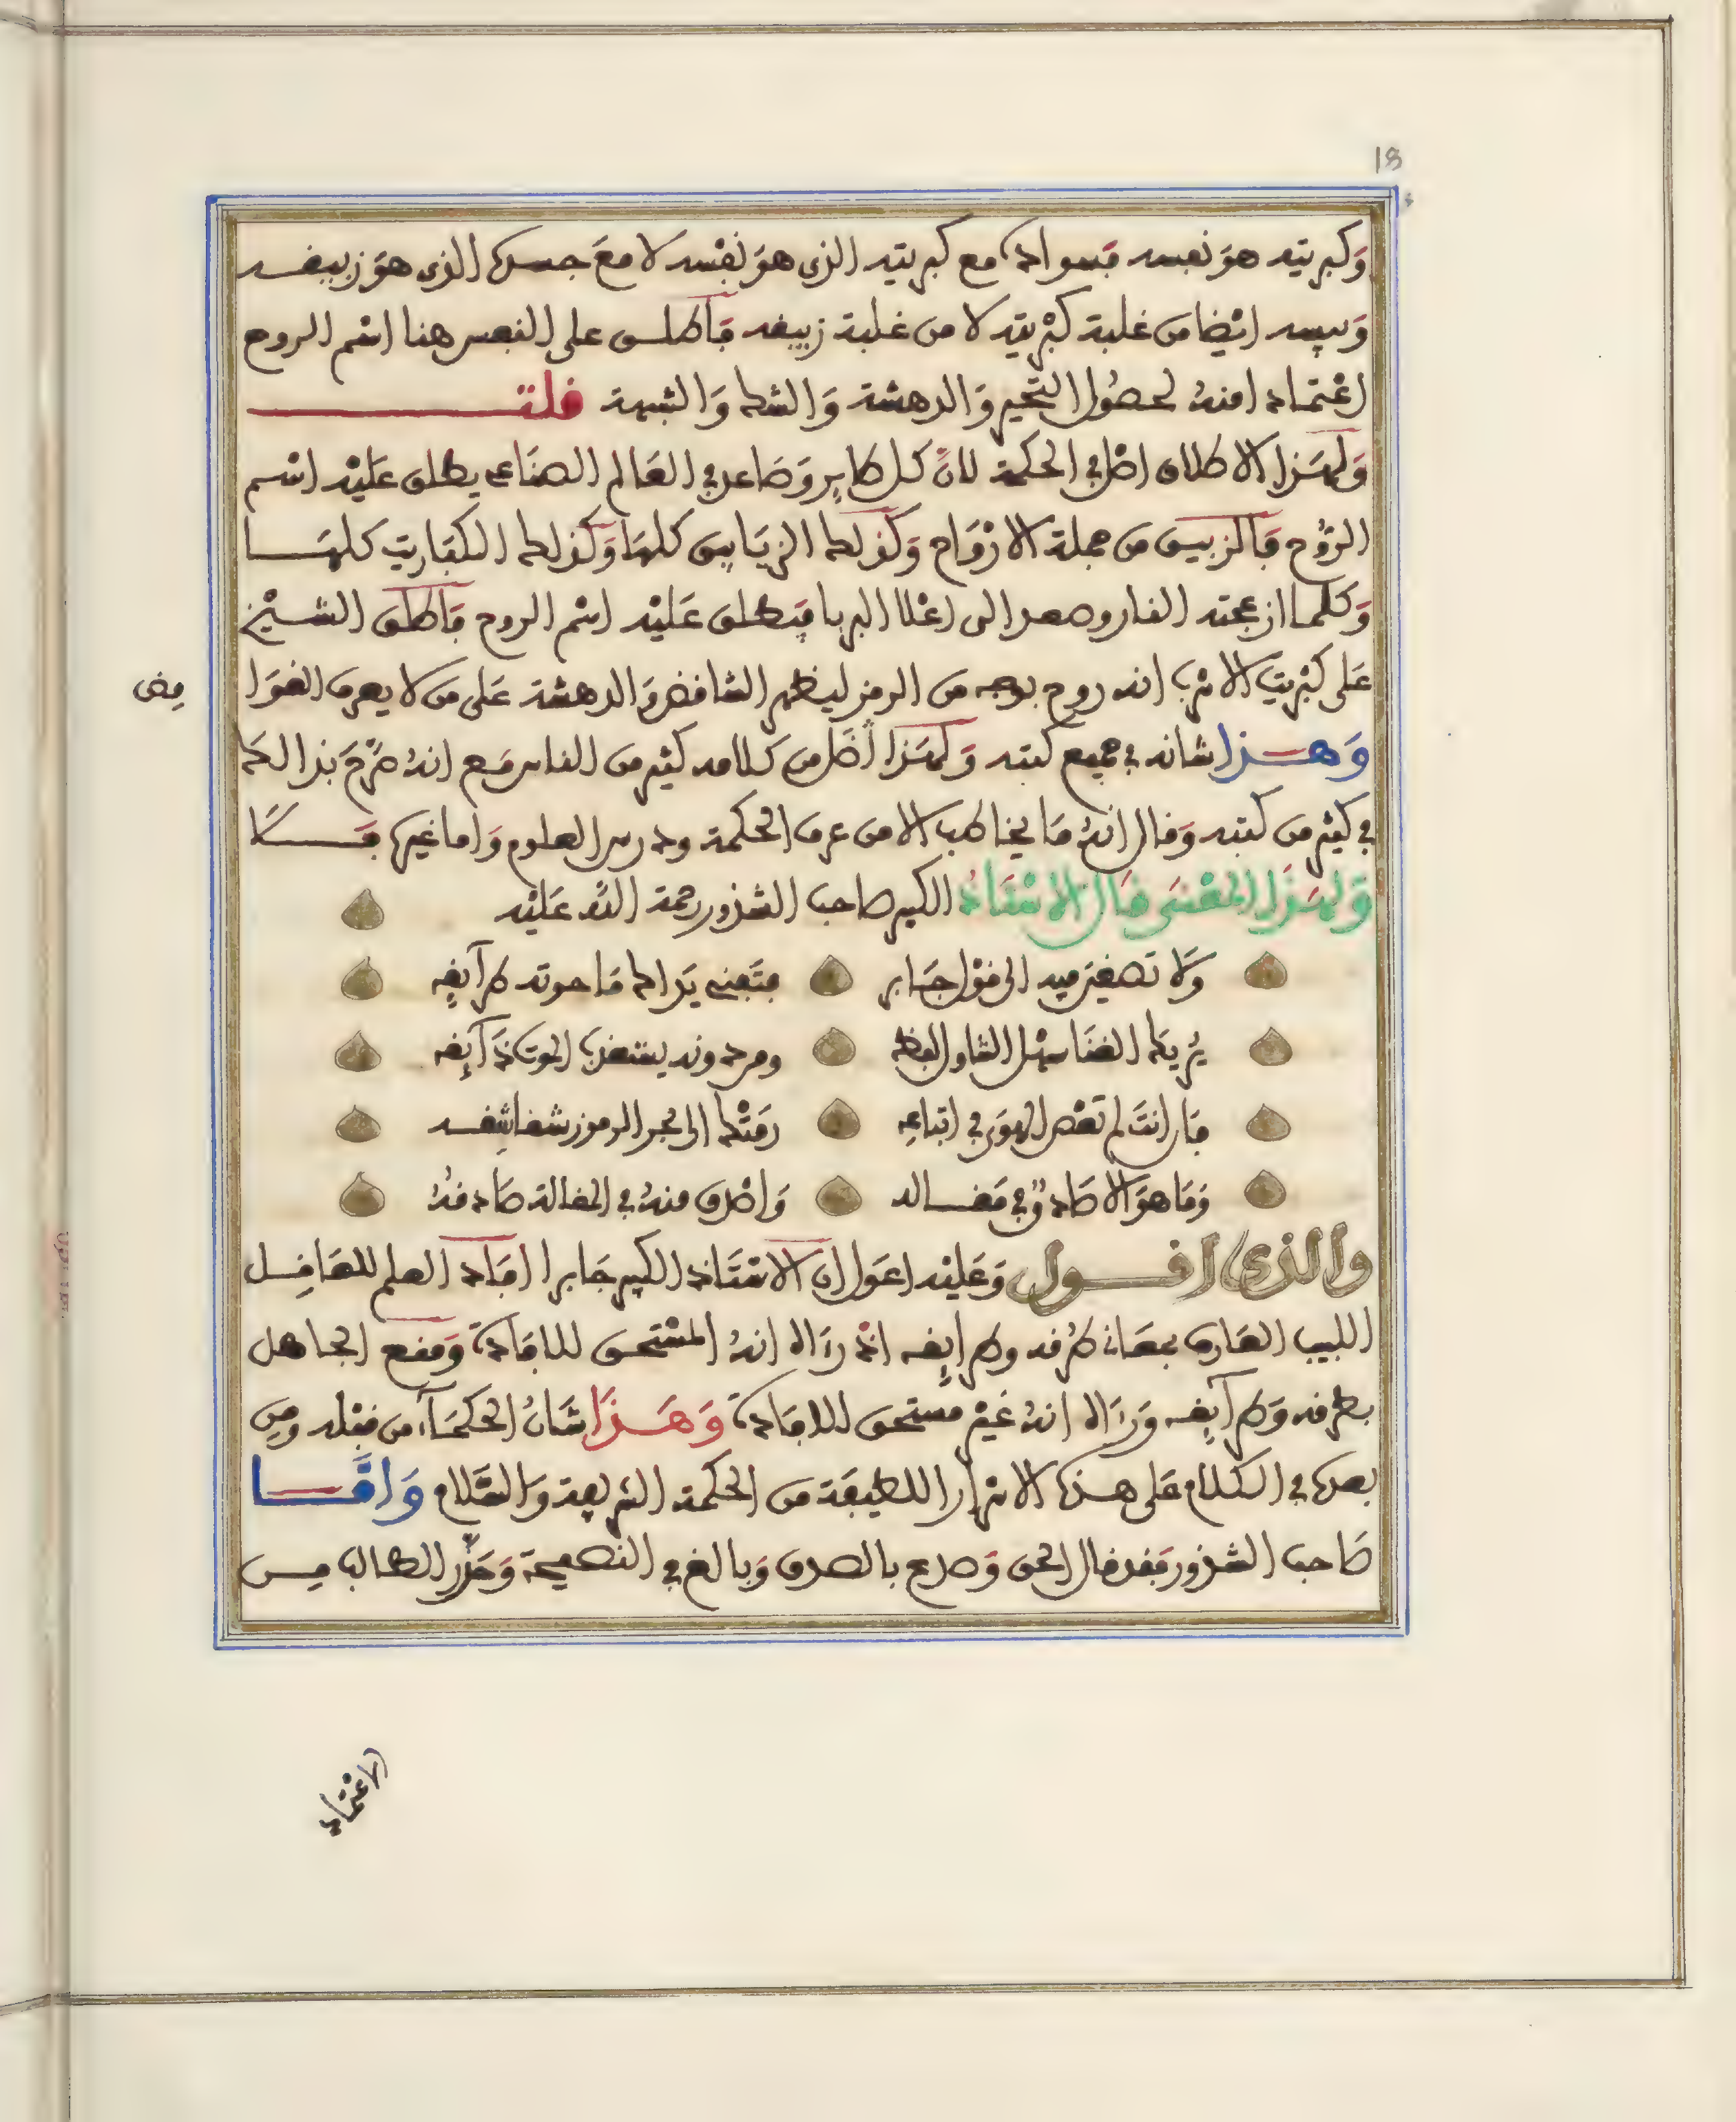 18
وَكبريته هوَ نفسه فسواده مع كبريته الذى هوَ نفْسه لا معَ جسده الذى هوَ زيبقـه
وَيبسه ايْضا من غلبة كبْريته لا من غلبة زيبقه فأطلـق على النفس هنا اسْم الروح
اعْتمادا منهُ لحصُول التحْيير وَالدهشة وَالشك وَالشبهة قلتـــــ
وَلهَـذا الاطلاق اصْل في الحكمة لانَّ كل طاير وَصَاعد في العَالم الصنَاعى يطلق عَليْه اسْـم
الرُّوح فَالزيبـق من جملة الارْوَاح وَكذلك الزيَابق كلهَا وَكذلك الكبَاريت كلهَـــا
وَكلما ازعجته النار وصعد الى اعْلا البربا فيَطلق عَليْه اسْم الروح فأطلق الشـيْخ
عَلى كبْريت الاسْرب انه روح بوجه من الرمز ليظهر التناقض وَالدهشة عَلى من لا يعرف الغوَا
مض
وَهـــذا شانه في جميع كتبه وَلهَـذا أضَل من كلامه كثير من الناس مَع انهُ صَرَّحَ بذالك
في كثير من كتبه وَقال انهُ مَا يخاطب الا من عرف الحكمة ودرس العلوم وَاما غيره فَــلَا
وَلهـذا المعْنىَ قال الاسْتَاذ الكبير صاحب الشذور رحمة اللّه عَليْه
وَلا تصْغيَن فيه الى قوْل جَابر فتَفنى يَداك مَا حوته طرآيقه
يُريك الغنَا سهْل التناول لفظه ومن دونه يستعْذب الموتَ ذَآيقه
فَان انتَ لم تعْص الهوَى في اتباعه رمَتْك الى بحر الرموز شقاشقـه
وَمَا هوَ الا صَادقٌ في مَقـاله وَاصْدق منهُ في المقالة صَادقهُ
والذى اقـــول وَعَليْه اعَول ان الاسْتَاذ الكبير جَابرا افَاد العلم للعَاقـل
اللبيب العَارف بمعَانى طرُقه وطرايقه اذْ رَءاه انهُ المسْتحـق للافَادة وَمنع الجاهل
بطرقه وَطرآيقـه وَرَءاه انهُ غيْر مستحق للافَادة وَهَـذَا شَانُ الحكمَآء من قبْله ومِن
بعده في الكلام عَلى هـذه الاسْرار اللطيفَة من الحكمة الشريفة وَالسَّلام وَامَّــا
صَاحب الشذور فقد قال الحق وَصدع بالصدق وَبالغ في النصيحة وَحَذَّر الطالب مـن
الاعْتماد